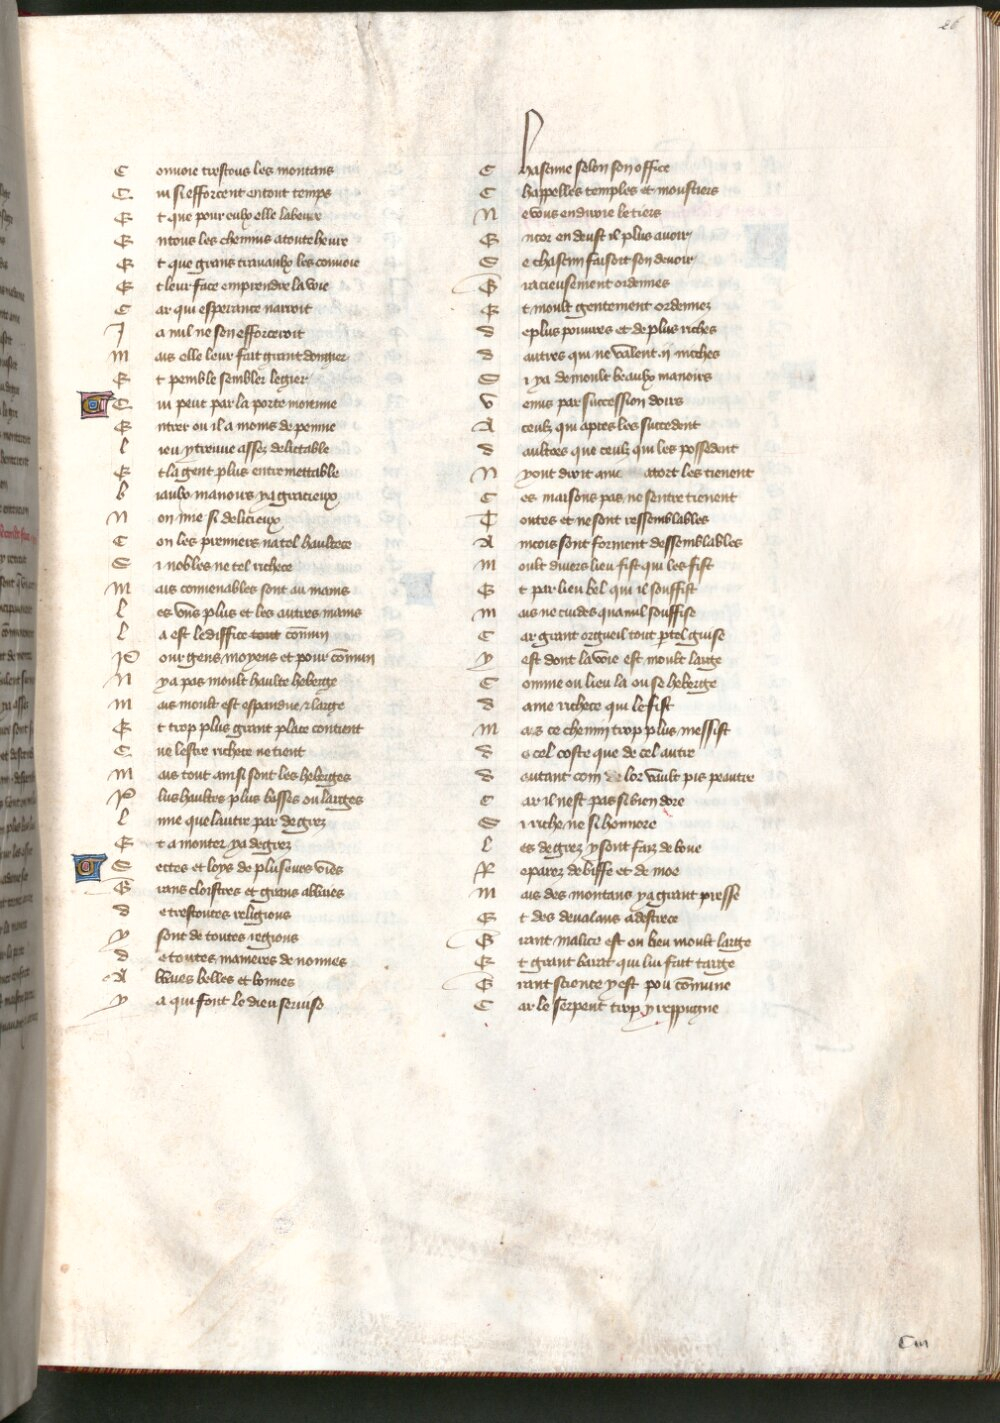 26
Convoie trestous les montans
Qui si efforcent en tout temps
Et que pour eulx elle labeure
En tous les chemins a toute heure
Et que grans travaulx les convoie
Et leur face emprendre la voie
Car qui esperance n aroit
Ja nul ne s en efforceroit
Mais elle leur fait grant dongier
Et penible sembler legier
Qui peut par la porte moienne
Entrer ou il a moins de penne
lieu y treuve assez delictable
Et la gent plus entremettable
biaulx manoirs y a gracieux
Non mie si delicieux
Con les premiers na tel haultece
Si nobles ne tel richece
Mais convenables sont au mains
les vns plus et les autres mains
la est lediffice tout comun
Pour gens moyens et pour cōmun
N y a pas moult haulte heberge
mais moult est espandue & large
Et trop plus grant place contient
Que lestre richece ne tient
Mais tout ainsi sont les heberges
Plus haultes plus basses ou larges
lune que lautre par degrez
Et a monter y a degrez
Sectes et loys de pluseurs vies
Grans cloistres et grans abbaies
de trestoutes religions
y sont de toutes regions
de toutes manieres de nonnes
Abbaies belles et bonnes
y a qui font le dieu servise
Chascune selon son office
Chappelles temples et moustiers
Ne vous en diroie le tiers
Encor en deust il plus avoir
Se chascun faisoit son devoir
Gracieusement ordennes
Et moult gentement ordennez
de plus povres et de plus riches
dautres qui ne valent ij miches
Si y a de moult beaulx manoirs
Venus par succession doirs
A ceulx qui apres les succedent
daultres que ceulx qui les possedent
N y ont droit ainc a tort les tienent
Ces maisons pas ne sentre tienent
Toutes et ne sont ressemblables
Aincois sont forment dessemblables
moult divers lieu fist qui les fist
Et par lieu bel qui il souffist
mais ne cuides qua nul souffise
Car grant orgueil tout p tel guise
y est dont la voie est moult large
Comme ou lieu la ou se heberge
dame richece qui le fist
Mais ce chemin trop plus messist
de cel coste que de cel autre
dautant com de lor vault pis peautre
Car il nest pas si bien dore
Si riche ne si honnore
les degrez y sont faiz de boue
Reparez de biffe et de moe
mais des montans y a grant presse
Et des devalans a destrece
Grant malice est ou lieu moult large
Et grant barat qui lui fait targe
Grant science y est pou cōmune
Car le serpent trop y reppugne